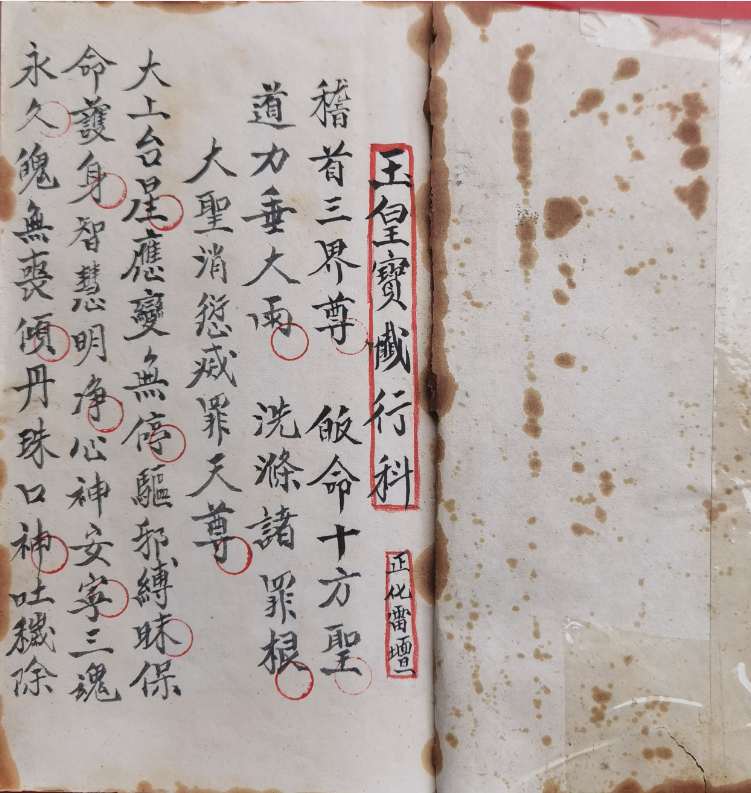 玉皇寶懺行科
正化雷壇
稽首三界尊 皈命十方聖
道力垂大雨 洗滌諸罪根
大聖消愆烕罪天尊
大上台星應變無停驅邪縛昧保
命護身智慧明净心神安寧三魂
永久魄無喪傾丹珠口神吐穢除